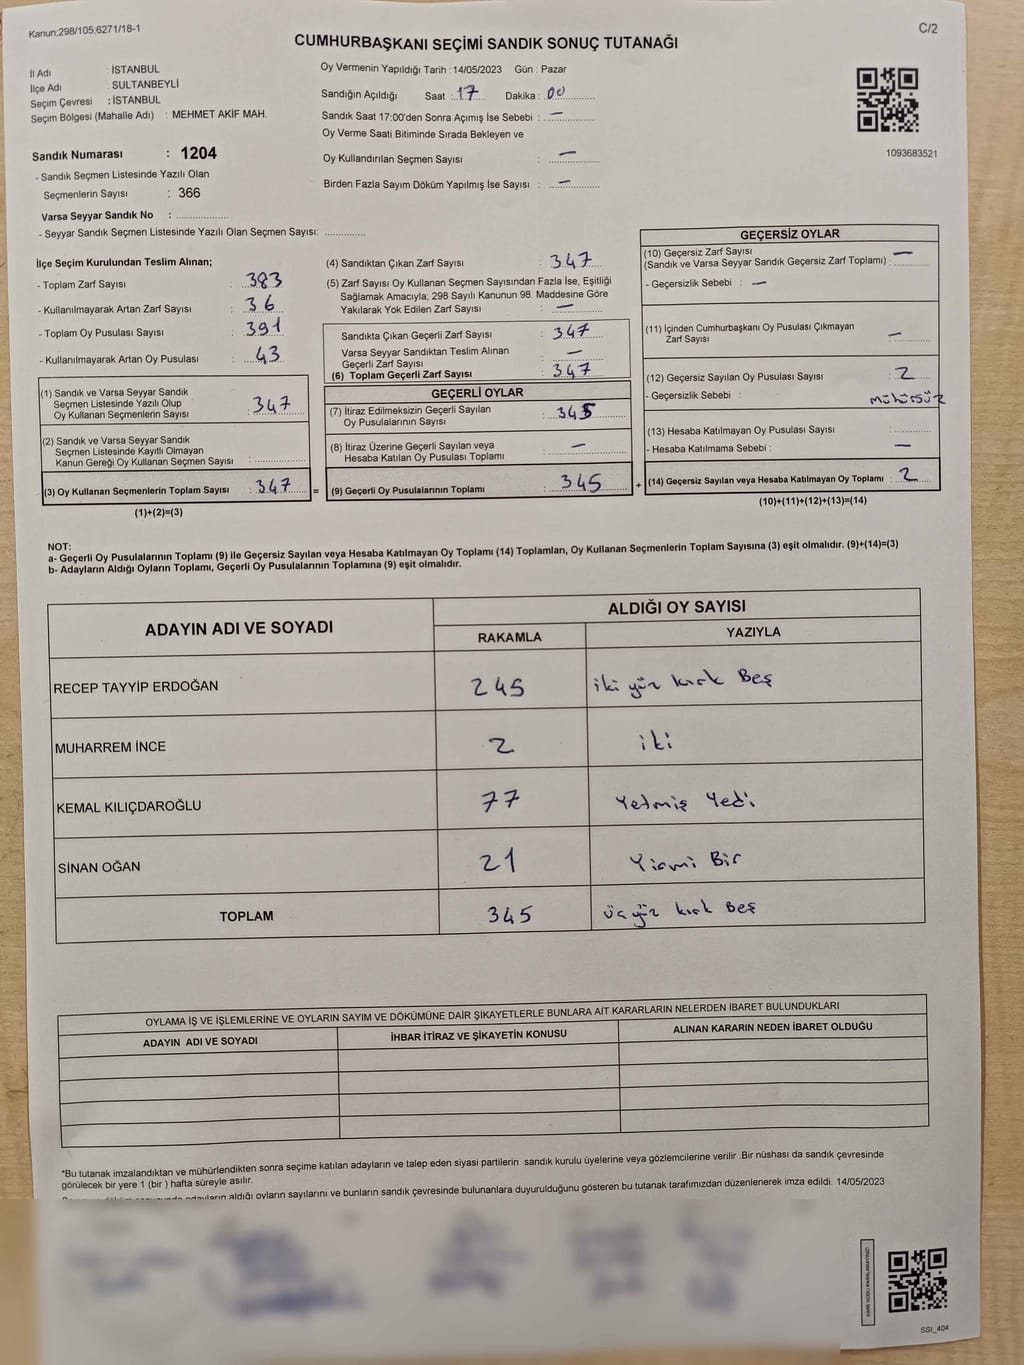 Kanun;298/105;6271/18-1
C/2
CUMHURBAŞKANI SEÇİMİ SANDIK SONUÇ TUTANAĞI
İl Adı : İSTANBUL
İlçe Adı : SULTANBEYLİ
Seçim Çevresi : İSTANBUL
Seçim Bölgesi (Mahalle Adı) : MEHMET AKİF MAH.
Sandık Numarası : 1204
- Sandık Seçmen Listesinde Yazılı Olan
Seçmenlerin Sayısı : 366
Varsa Seyyar Sandık No : ....................
- Seyyar Sandık Seçmen Listesinde Yazılı Olan Seçmen Sayısı: ...............
Oy Vermenin Yapıldığı Tarih : 14/05/2023 Gün : Pazar
Sandığın Açıldığı Saat : 17 Dakika : 00
Sandık Saat 17:00'den Sonra Açımış İse Sebebi : —
Oy Verme Saati Bitiminde Sırada Bekleyen ve
Oy Kullandırılan Seçmen Sayısı : —
Birden Fazla Sayım Döküm Yapılmış İse Sayısı : —
1093683521
İlçe Seçim Kurulundan Teslim Alınan;
- Toplam Zarf Sayısı : 383
- Kullanılmayarak Artan Zarf Sayısı : 36
- Toplam Oy Pusulası Sayısı : 391
- Kullanılmayarak Artan Oy Pusulası : 43
(1) Sandık ve Varsa Seyyar Sandık
Seçmen Listesinde Yazılı Olup
Oy Kullanan Seçmenlerin Sayısı : 347
(2) Sandık ve Varsa Seyyar Sandık
Seçmen Listesinde Kayıtlı Olmayan
Kanun Gereği Oy Kullanan Seçmen Sayısı :
(3) Oy Kullanan Seçmenlerin Toplam Sayısı : 347
(1)+(2)=(3)
=
(4) Sandıktan Çıkan Zarf Sayısı : 347
(5) Zarf Sayısı Oy Kullanan Seçmen Sayısından Fazla İse, Eşitliği
Sağlamak Amacıyla; 298 Sayılı Kanunun 98. Maddesine Göre
Yakılarak Yok Edilen Zarf Sayısı : —
Sandıkta Çıkan Geçerli Zarf Sayısı : 347
Varsa Seyyar Sandıktan Teslim Alınan
Geçerli Zarf Sayısı : —
(6) Toplam Geçerli Zarf Sayısı : 347
GEÇERLİ OYLAR
(7) İtiraz Edilmeksizin Geçerli Sayılan
Oy Pusulalarının Sayısı : 345
(8) İtiraz Üzerine Geçerli Sayılan veya
Hesaba Katılan Oy Pusulası Toplamı : —
(9) Geçerli Oy Pusulalarının Toplamı : 345
+
GEÇERSİZ OYLAR
(10) Geçersiz Zarf Sayısı
(Sandık ve Varsa Seyyar Sandık Geçersiz Zarf Toplamı) : —
- Geçersizlik Sebebi : —
(11) İçinden Cumhurbaşkanı Oy Pusulası Çıkmayan
Zarf Sayısı : —
(12) Geçersiz Sayılan Oy Pusulası Sayısı : 2
- Geçersizlik Sebebi : mühürsüz
(13) Hesaba Katılmayan Oy Pusulası Sayısı :
- Hesaba Katılmama Sebebi : —
(14) Geçersiz Sayılan veya Hesaba Katılmayan Oy Toplamı : 2
(10)+(11)+(12)+(13)=(14)
NOT:
a- Geçerli Oy Pusulalarının Toplamı (9) ile Geçersiz Sayılan veya Hesaba Katılmayan Oy Toplamı (14) Toplamları, Oy Kullanan Seçmenlerin Toplam Sayısına (3) eşit olmalıdır. (9)+(14)=(3)
b- Adayların Aldığı Oyların Toplamı, Geçerli Oy Pusulalarının Toplamına (9) eşit olmalıdır.
ADAYIN ADI VE SOYADI
ALDIĞI OY SAYISI
RAKAMLA YAZIYLA
RECEP TAYYİP ERDOĞAN 245 iki yüz kırk Beş
MUHARREM İNCE 2 iki
KEMAL KILIÇDAROĞLU 77 Yetmiş Yedi
SİNAN OĞAN 21 Yirmi Bir
TOPLAM 345 üç yüz kırk Beş
OYLAMA İŞ VE İŞLEMLERİNE VE OYLARIN SAYIM VE DÖKÜMÜNE DAİR ŞİKAYETLERLE BUNLARA AİT KARARLARIN NELERDEN İBARET BULUNDUKLARI
ADAYIN ADI VE SOYADI İHBAR İTİRAZ VE ŞİKAYETİN KONUSU ALINAN KARARIN NEDEN İBARET OLDUĞU
*Bu tutanak imzalandıktan ve mühürlendikten sonra seçime katılan adayların ve talep eden siyasi partilerin sandık kurulu üyelerine veya gözlemcilerine verilir .Bir nüshası da sandık çevresinde
görülecek bir yere 1 (bir ) hafta süreyle asılır.
adayların aldığı oyların sayılarını ve bunların sandık çevresinde bulunanlara duyurulduğunu gösteren bu tutanak tarafımızdan düzenlenerek imza edildi. 14/05/2023
KARE KODU KARALAMAYINIZ!
SSI_404